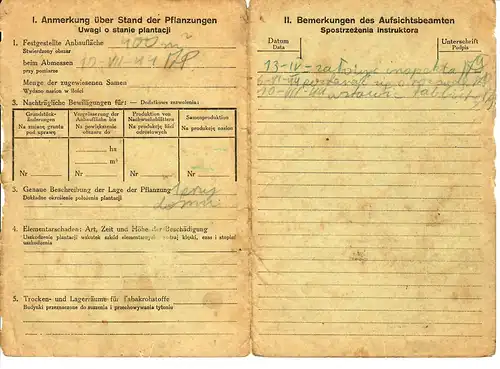 I. Anmerkung über Stand der Pflanzungen
Uwagi o stanie plantacji
1. Festgestellte Anbaufläche 400 m²
Stwierdzony obszar
beim Abmessen 10-VII-44
przy pomiarze
Menge der zugewiesenen Samen
Wydano nasion w ilości
3. Nachträgliche Bewilligungen für: — Dodatkowe zezwolenia:
Grundstücks-
änderungen
Na zmianę gruntu
pod uprawę
Nr
Vergrösserung der
Anbaufläche bis
Na powiększenie
obszaru do
ha
m²
Nr
Produktion von
Nachwuchsblättern
Na produkcję liści
odrostowych
Nr
Samenproduktion
Na produkcję nasion
Nr
3. Genaue Beschreibung der Lage der Pflanzung
Dokładne określenie położenia plantacji
4. Elementarschaden: Art, Zeit und Höhe der Beschädigung
Uszkodzenie plantacji wskutek szkód elementarnych: rodzaj klęski, czas i stopień
uszkodzenia
5. Trocken- und Lagerräume für Tabakrohstoffe
Budynki przeznaczone do suszenia i przechowywania tytoniu
II. Bemerkungen des Aufsichtsbeamten
Spostrzeżenia instruktora
Datum
Data
Unterschrift
Podpis
13-IV- założył inspekta
6-VI-44
10-VII-44